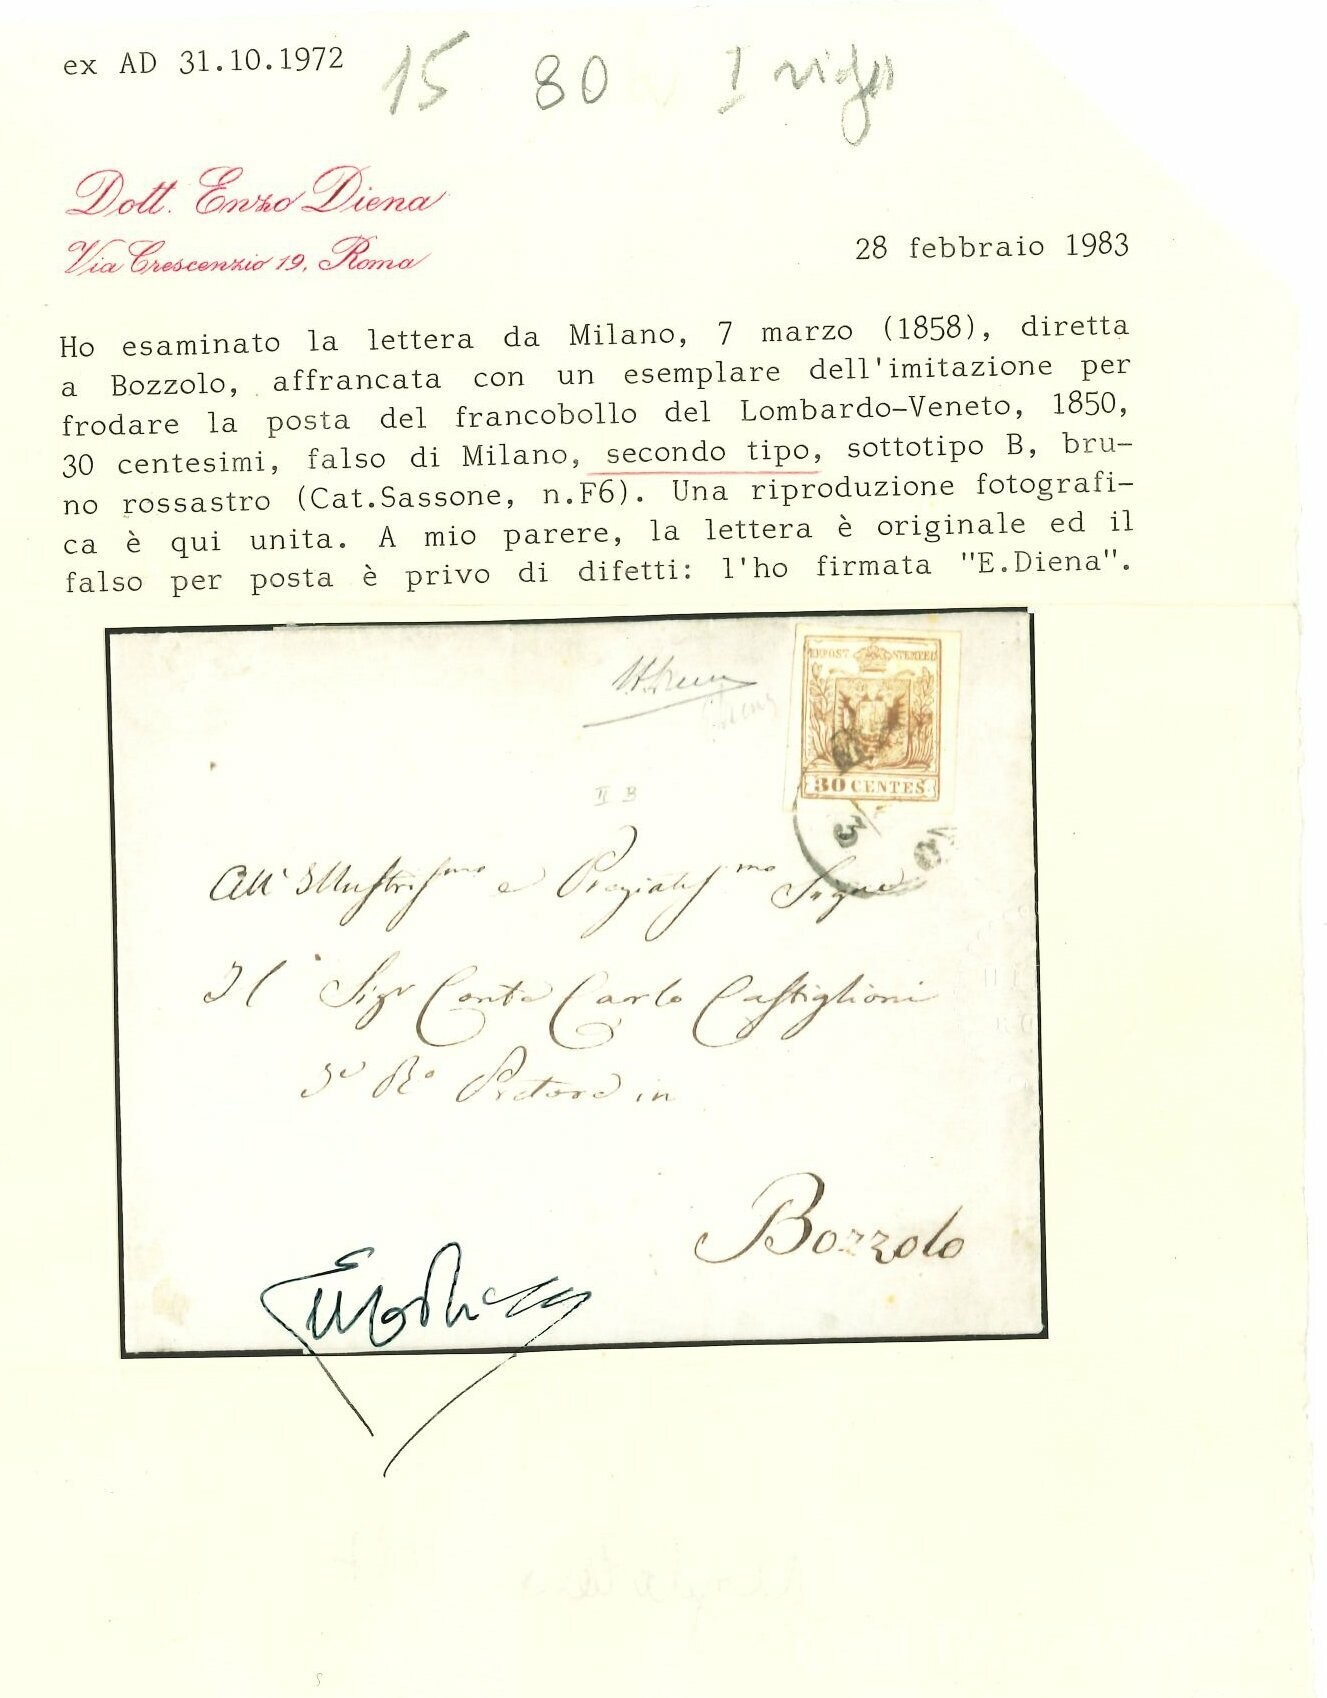 ex AD 31.10.1972 15 80 I riga
Dott. Enzo Diena
Via Crescenzio 19, Roma
28 febbraio 1983
Ho esaminato la lettera da Milano, 7 marzo (1858), diretta
a Bozzolo, affrancata con un esemplare dell'imitazione per
frodare la posta del francobollo del Lombardo-Veneto, 1850,
30 centesimi, falso di Milano, secondo tipo, sottotipo B, bru-
no rossastro (Cat.Sassone, n.F6). Una riproduzione fotografi-
ca è qui unita. A mio parere, la lettera è originale ed il
falso per posta è privo di difetti: l'ho firmata "E.Diena".
STEMPEL
30 CENTES
II B
All' Illustrissmo e Pregiatissmo Signe
Il Sigr Conte Carlo Castiglioni
Pretore in
Bozzolo